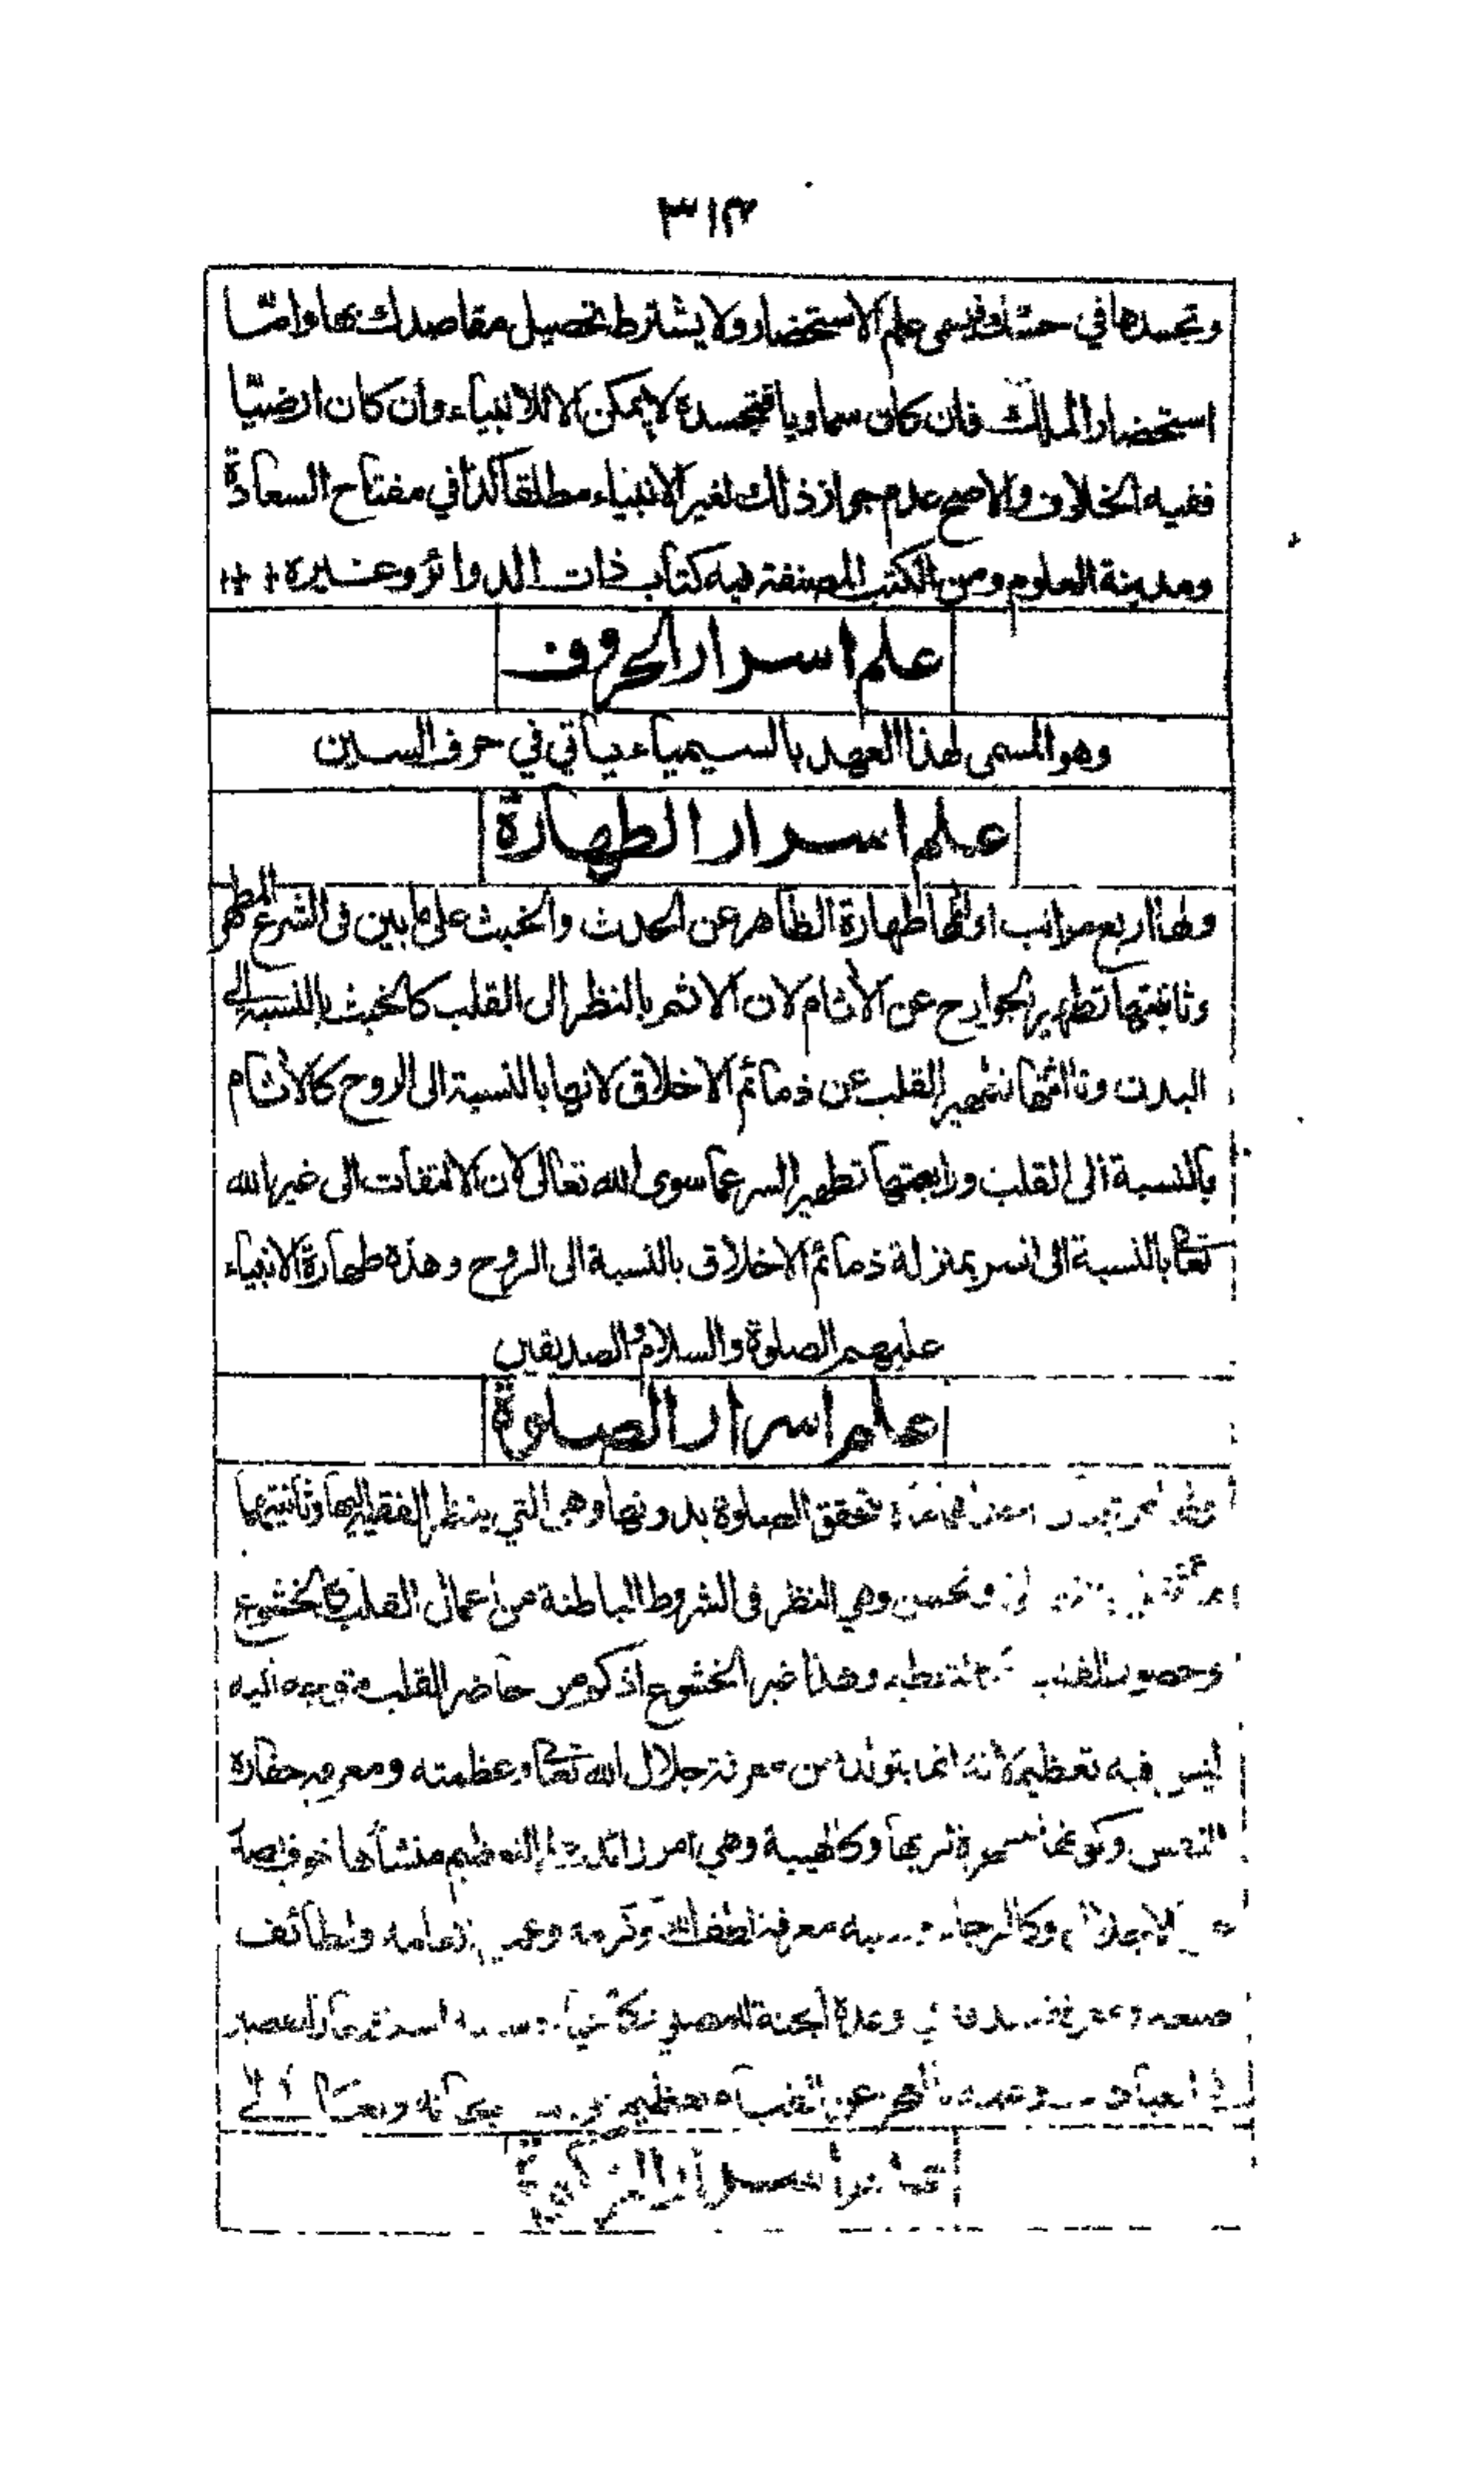 ٣١٣
وتجسدها في حسك فيسمى علم الاستحضار ولا يشترط تحصيل مقاصدك بها واما
استحضار الملك فان كان سماويا فتجسده لا يمكن الا للانبياء وان كان ارضيا
ففيه الخلاف والاصح عدم جواز ذلك لغير الانبياء مطلقا كذا في مفتاح السعادة
ومدينة العلوم ومن الكتب المصنفة فيه كتاب ذات الدوائر وغيره
علم اسرار الحروف
وهو المسمى لهذا العهد بالسيمياء ياتي في حرف السين
علم اسرار الطهارة
ولها اربع مراتب اولها طهارة الظاهر عن الحدث والخبث على ما بين فى الشرع المطهر
وثانيتها تطهير الجوارح عن الآثام لان الاثم بالنظر الى القلب كالخبث بالنسبة الى
البدن وثالثها تطهير القلب عن ذمائم الاخلاق لانها بالنسبة الى الروح كالآثام
بالنسبة الى القلب ورابعتها تطهير السر عما سوى الله تعالى لان الالتفات الى غير الله
تعا بالنسبة الى السر بمنزلة ذمائم الاخلاق بالنسبة الى الروح وهذه طهارة الانبياء
عليهم الصلوة والسلام والصديقين
علم اسرار الصلوة
تتحقق الصلوة بدونها وهى التي ينظر الفقيه اليها وثانيتهما
وتحسن وهي النظر فى الشروط الباطنة من اعمال القلب كالخشوع
وحضور القلب وهذا غير الخشوع اذ كم من حاضر القلب متوجه اليه
ليس فيه تعظيم لانه انما يتولد من معرفة جلال الله تعا وعظمته ومعرفة حقارة
النفس وكونها مسخرة لربها وكالهيبة وهي امر زائد على التعظيم منشأها خوف
الاجلال وكالرجاء معرفة لطف الله وكرمه انعامه ولطائف
صنعه وعده الجنة
العباد عن تعظيم
علم اسرار الزكوة